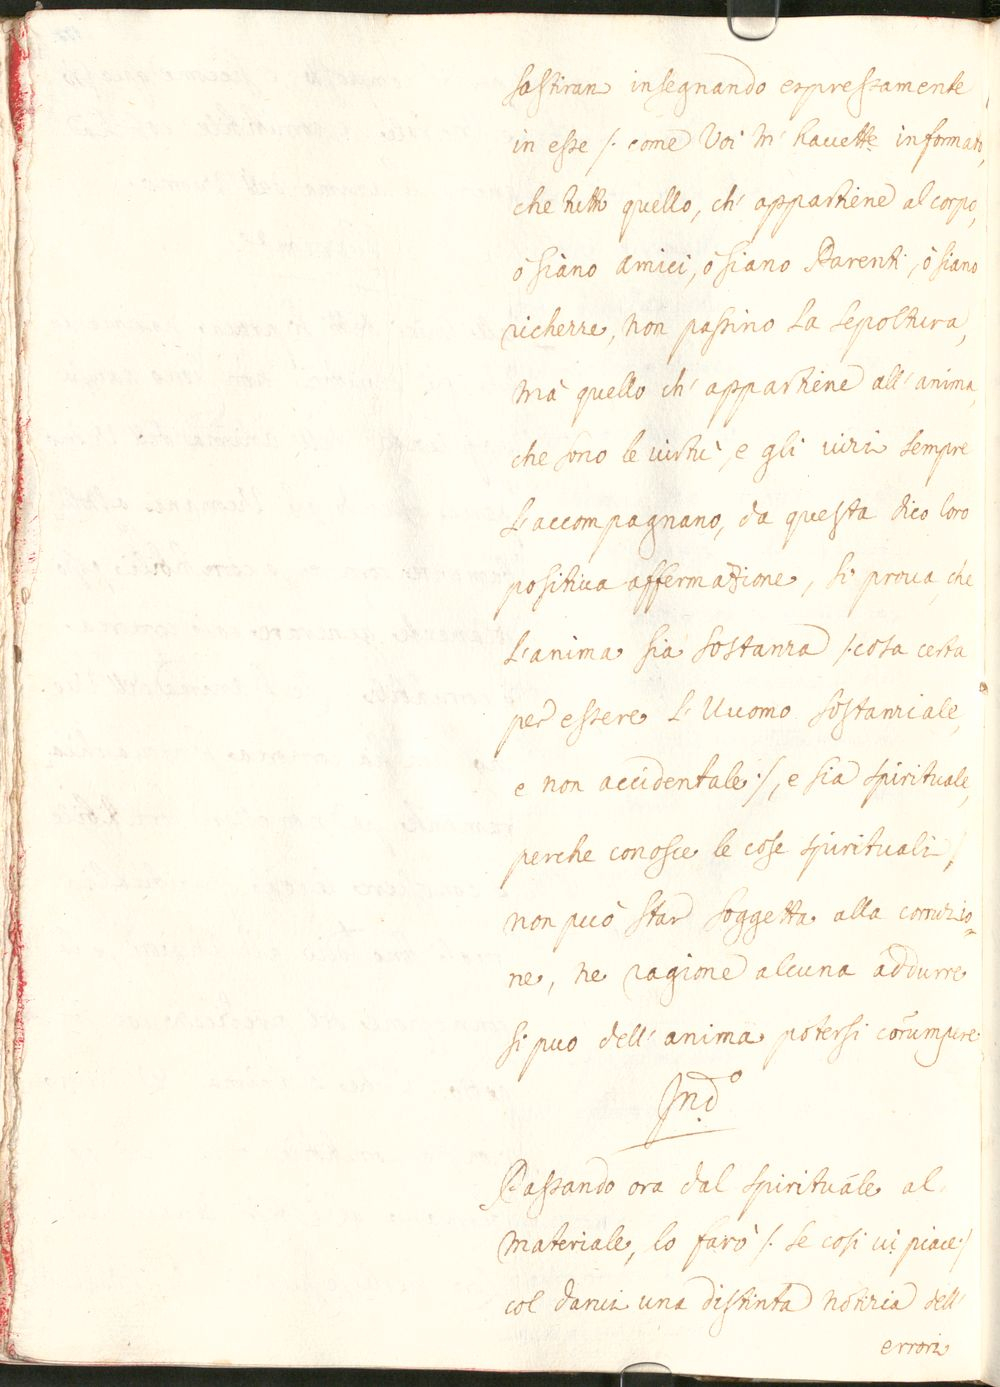 Sastiran insegnando espressamente
in esse /. come Voi m' havette informato,
che tutto quello, ch' appartiene al corpo,
ò siàno amici, ò siano Parenti, ò siano
richezze, non passino la sepoltura,
mà quello ch' appartiene all' anima,
che sono le virtù, e gli vizi sempre
l'accompagnano, da questa dico loro
positiva affermazione, si prova, che
l'anima sia sostanza /. cosa certa
per essere l'Uuomo sostanziale,
e non accidentale ./, e sia spirituale,
perche conosce le cose spirituali,
non può star soggetta alla corruzio-
ne, ne ragione alcuna addurre
si puo dell' anima potersi corumpere.
Ind.o
Passando ora dal spirituale al
materiale, lo farò /. se cosi vi piace ./
col darvi una distinta notizia dell'
errori